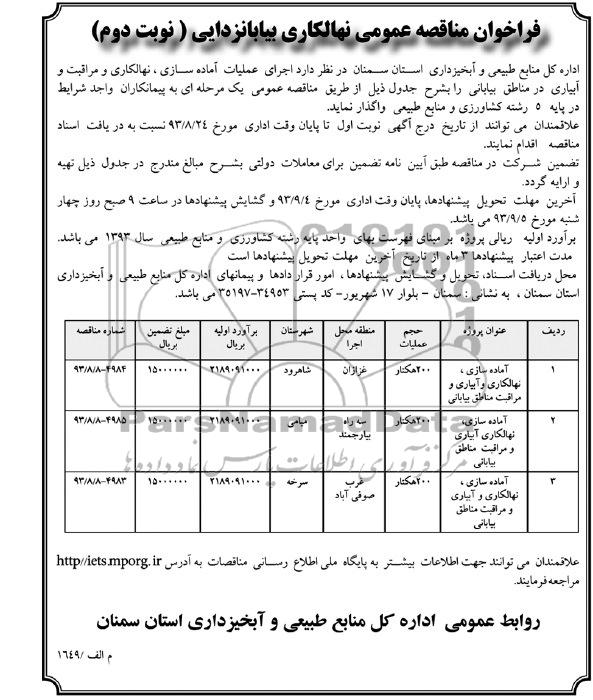 فراخوان مناقصه عمومی نهالکاری بیابانزدایی ( نوبت دوم)
اداره کل منابع طبیعی و آبخیزداری استان سـمنان در نظر دارد اجرای عملیات آماده سـازی ، نهالکاری و مراقبت و
آبیاری در مناطق بیابانی را بشرح جدول ذیل از طریق مناقصه عمومی یک مرحله ای به پیمانکاران واجد شرایط
در پایه ۵ رشته کشاورزی و منابع طبیعی واگذار نماید.
علاقمندان می توانند از تاریخ درج آگهی نوبت اول تا پایان وقت اداری مورخ ۹۳/۸/۲۴ نسبت به دریافت اسناد
مناقصه اقدام نمایند.
تضمین شـرکت در مناقصه طبق آیین نامه تضمین برای معاملات دولتی بشـرح مبالغ مندرج در جدول ذیل تهیه
و ارایه گردد.
آخرین مهلت تحویل پیشنهادها، پایان وقت اداری مورخ ۹۳/۹/۴ و گشایش پیشنهادها در ساعت ۹ صبح روز چهار
شنبه مورخ ۹۳/۹/۵ می باشد.
برآورد اولیه ریالی پروژه بر مبنای فهرست بهای واحد پایه رشته کشاورزی و منابع طبیعی سال ۱۳۹۳ می باشد.
مدت اعتبار پیشنهادها ۳ ماه از تاریخ آخرین مهلت تحویل پیشنهادها است
محل دریافت اسـناد، تحویل و گشـایش پیشنهادها ، امور قرار دادها و پیمانهای اداره کل منابع طبیعی و آبخیزداری
استان سمنان ، به نشانی : سمنان – بلوار ۱۷ شهریور- کد پستی ۳۴۹۵۳-۳۵۱۹۷ می باشد.
ردیف عنوان پروژه حجم عملیات منطقه محل اجرا شهرستان برآورد اولیه بریال مبلغ تضمین بریال شماره مناقصه
۱ آماده سازی ، نهالکاری و آبیاری و مراقبت مناطق بیابانی ۲۰۰هکتار غزازان شاهرود ۲۱۸۹۰۹۱۰۰۰ ۱۵۰۰۰۰۰۰ ۹۳/۸/۸-۴۹۸۴
۲ آماده سازی، نهالکاری آبیاری و مراقبت مناطق بیابانی ۲۰۰هکتار سه راه بیارجمند میامی ۲۱۸۹۰۹۱۰۰۰ ۱۵۰۰۰۰۰۰ ۹۳/۸/۸-۴۹۸۵
۳ آماده سازی ، نهالکاری و آبیاری و مراقبت مناطق بیابانی ۲۰۰هکتار غرب صوفی آباد سرخه ۲۱۸۹۰۹۱۰۰۰ ۱۵۰۰۰۰۰۰ ۹۳/۸/۸-۴۹۸۳
ParsNamadData
مرکز فرآوری اطلاعات پارس نماد داده ها
علاقمندان می توانند جهت اطلاعات بیشتر به پایگاه ملی اطلاع رسانی مناقصات به آدرس http//iets.mporg.ir
مراجعه فرمایند.
روابط عمومی اداره کل منابع طبیعی و آبخیزداری استان سمنان
م الف /۱۶۴۹